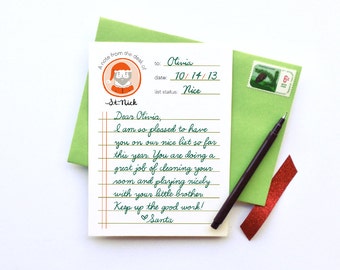 A note from the desk of
St. Nick
to: Olivia
date: 10/14/13
list status: Nice
Dear Olivia,
I am so pleased to have
you on our nice list so far
this year. You are doing a
great job of cleaning your
room and playing nicely
with your little brother.
Keep up the good work!
♡Santa